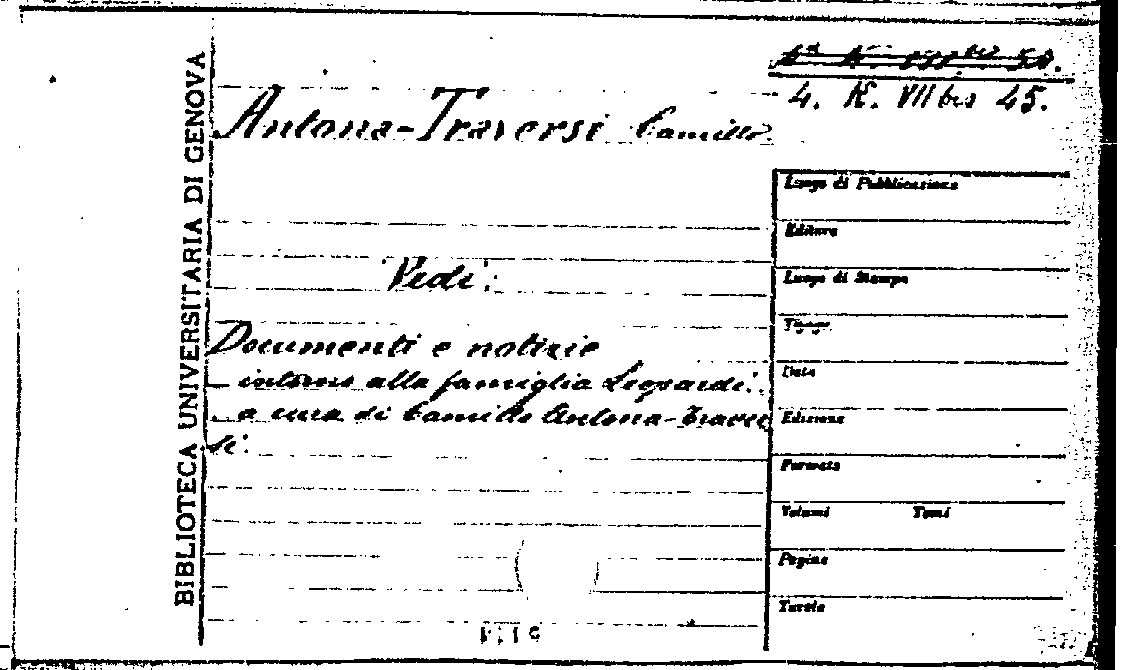 BIBLIOTECA UNIVERSITARIA DI GENOVA
4. K. VII bis 45.
Antona-Traversi Camillo
Vedi:
Documenti e notizie
intorno alla famiglia Leopardi.
a cura di Camillo Antona-Traver
si.
Luogo di Pubblicazione
Editore
Luogo di Stampa
Tipogr.
Data
Edizione
Formato
Volumi Tomi
Pagine
Tavole